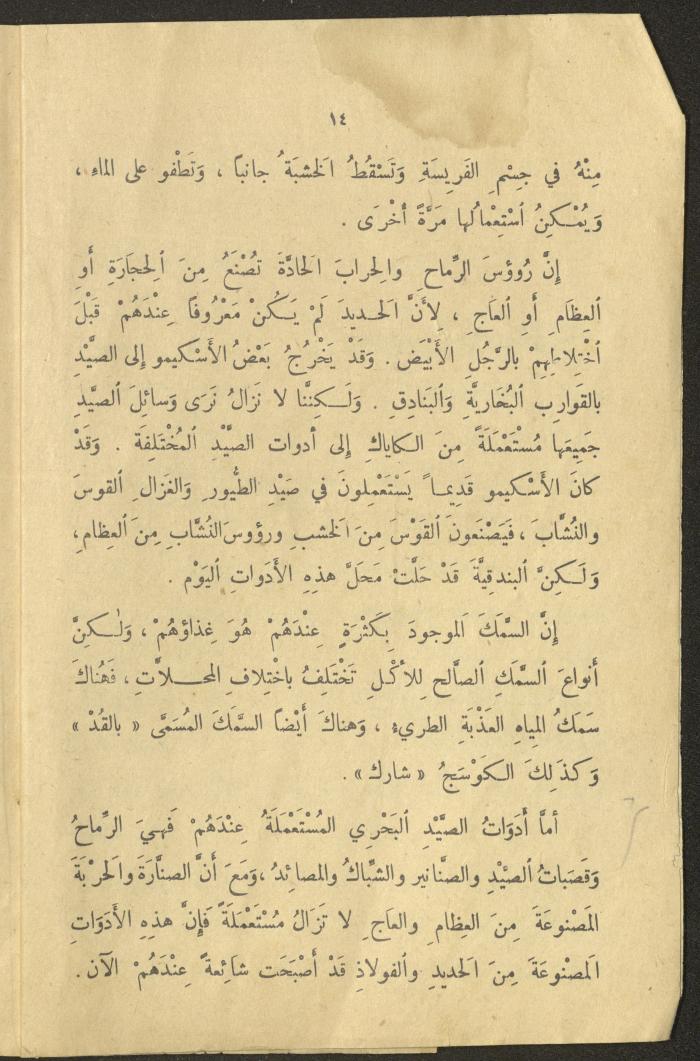 ١٤
مِنْهُ في جِسْمِ الفَرِيسَةِ وَتَسْقُطُ الخَشبَةُ جانباً ، وَتَطْفو على الماءِ ،
وَيُمْـكِنُ ٱسْتِعْمالُها مَرَّةً أُخْرَى .
إِنَّ رُوؤسَ الرِّماحِ والحِرابَ الحادَّةَ تُصْنَعُ مِنَ ٱلحِجَارَةِ أَوِ
ٱلعِظَامِ أَوِ ٱلعَاجِ ، لِأَنَّ الحَـديدَ لَمْ يَـكُنْ مَعْرُوفًا عِنْدَهُمْ قَبْلَ
ٱخْتِلاطِهِمْ بالرَّجُلِ الأَبْيَضِ . وَقَدْ يَخْرُجُ بَعْضُ الأَسْكيمو إِلى الصَّيْدِ
بالقَوارِبِ ٱلبُخَاريَّةِ وَٱلبَنادِقِ . وَلَـكِنَّنا لا نَزالُ نَرَى وَسائلَ ٱلصَّيدِ
جَمِيعَها مُسْتَعْمَلَةً مِنَ الـكاياكِ إِلى أَدوات الصَّيْدِ ٱلمُخْتَلِفَةِ . وَقَدْ
كانَ الأَسْكيمو قَدِيمـاً يَسْتَعْمِلونَ في صَيْدِ الطُّيورِ وَالغَزالِ ٱلقوسَ
والنُشَّابَ ، فَيَصْنَعونَ ٱلقَوْسَ مِنَ الخَشبِ ورؤوسَ النُشَّابِ مِنَ ٱلعِظامِ،
وَلَـكِنَّ ٱلبندقيَّةَ قَدْ حَلَّتْ مَحَلَّ هذهِ الأَدَواتِ ٱليَوْم .
إِنَّ السَّمَكَ المَوجودَ بِكَثْرَةٍ عِنْدَهُمْ هُوَ غِذاؤُهُمْ ، وَلٰـكِنَّ
أَنواعَ ٱلسَّمَكِ ٱلصَّالحِ لِلأَكْلِ تَخْتَلِفُ باخْتِلافِ المحـلاَّتِ ، فَهُناكَ
سَمَكُ المِياهِ العَذْبَةِ الطريءِ ، وَهناكَ أَيْضاً السَّمَكَ المُسَمَّى « بالقُدْ »
وَكذَلِكَ الـكَوْسَجُ « شارك » .
أَمَّا أَدَوَاتُ الصَّيْدِ ٱلبَحْرِي المُسْتَعْمَلَةُ عِنْدَهُمْ فَهيَ الرِّماحُ
وَقَصَباتُ ٱلصَّيْدِ والصَّنانير والشِّباكُ والمصائدُ ،وَمَعَ أَنَّ الصنَّارَةَ والحَرْبَةَ
المَصْنوعَةَ مِنَ العِظامِ والعاجِ لا تَزَالُ مُسْتَعْمَلَةً فَإِنَّ هذهِ الأَدَوَاتِ
ٱلمَصْنوعَةَ مِنَ الحَديدِ وٱلفولاذِ قَدْ أَصْبَحَت شائِعَةً عِنْدَهُمْ الآن .